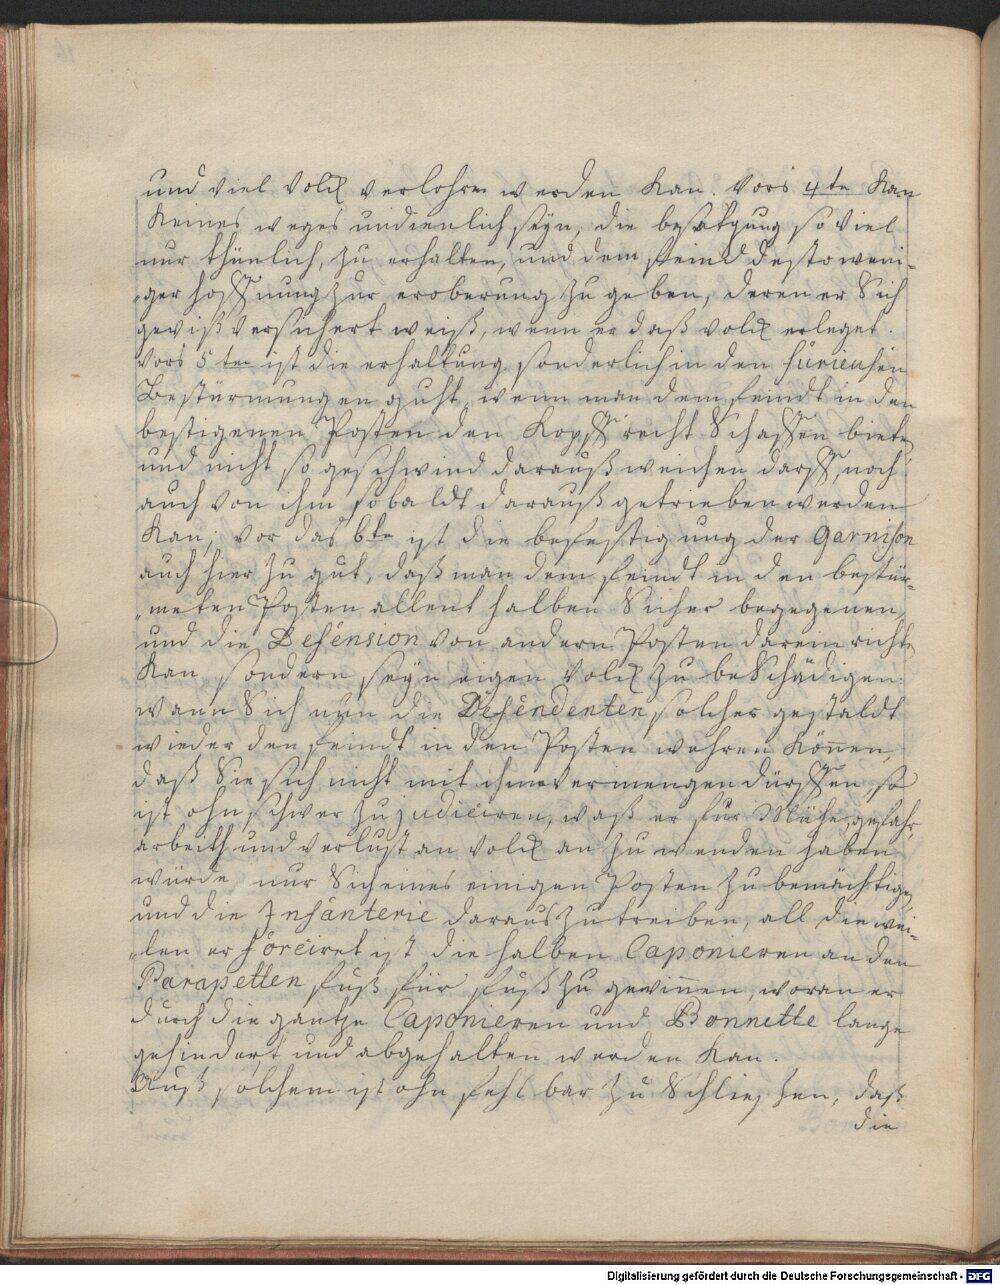 und viel Volck verlohren werden Kan. Vors 4te Kan
Keines weges undienlich seyn, die besatzung so viel
nur thünlich, zu erhalten, und dem feind desto weni-
„ger hoffnung zur eroberung zu geben, deren er Sich
gewiß versichert weiß, wenn er daß volck erleget.
Vors 5ten ist die erhaltung sonderlich in den furieusen
Bestürmungen guht, wenn man dem feindt in den
bestigenen Posten den Kopff recht Schaffen biete,
und nicht so geschwind darauß weichen darff, noch
auch von ihm sobaldt darauß getrieben werden
Kan; vor das 6te ist die befestigung der Garnison
auch hier zu gut, daß man dem feindt in den bestür-
„meten Posten allent halben Sicher begegenen,
und die Defension von andern Posten darein richten
Kan sondern seyn eigen Volck zu beSchädigen.
wann Sich nun die Defendenten solcher gestaldt
wieder den feindt in den Posten wehren Können,
daß Sie sich nicht mit ihme vermengen dürffen, so
ist ohnschwer zu judiciren, waß er für Mühe, gefahr,
arbeith und verlust an Volck an zu wenden haben
würde nur Sich eines einigen Posten zu bemächtigen,
und die Infanterie daraus zu treiben, all die wei-
„len er forciret ist die halben Caponieren an den
Parapetten fuß für fuß zu gewinnen, woran er
durch die gantze Caponieren und Bonnette lange
gehindert und abgehalten werden Kan.
Auß solchem ist ohn fehlbar zu Schliessen, daß
die
Digitalisierung gefördert durch die Deutsche Forschungsgemeinschaft - DFG